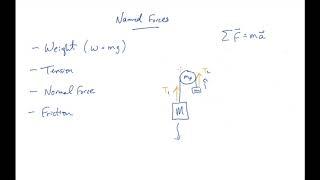 Named Forces
ΣF⃗ = ma⃗
- Weight (w = mg)
- Tension
- Normal Force
- Friction
mp
T₁
T₂
M